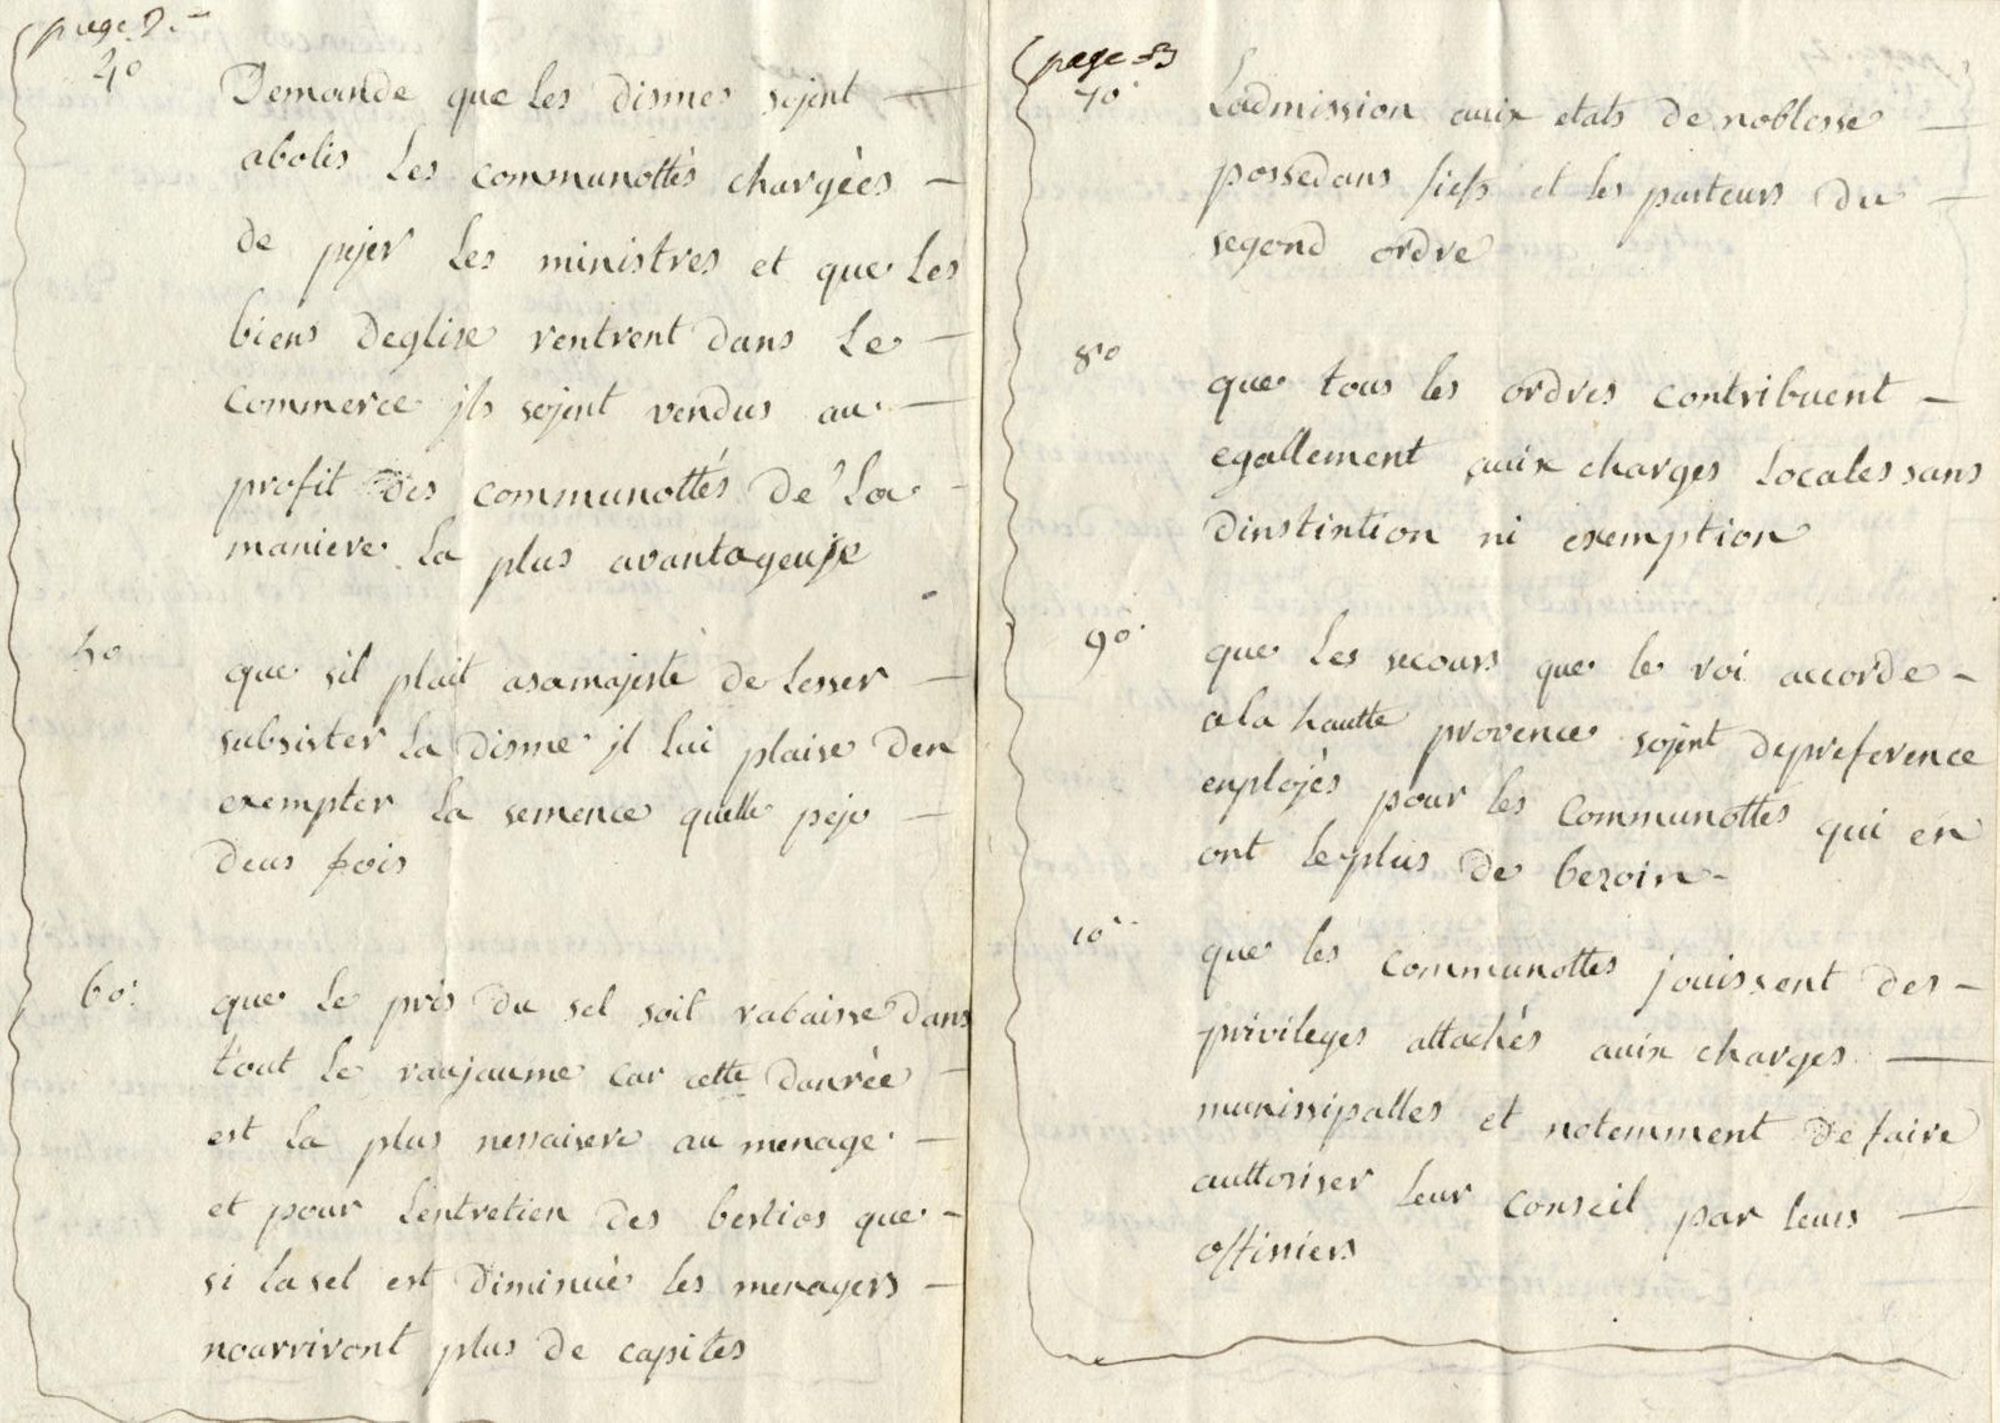 page 2.
4°
Demande que les dismes sojent
abolis les communottès chargèes
de pejer les ministres et que les
biens deglise rentrent dans le
commerce jls sojent vendus au
profit des communottés de la
maniere la plus avantageuse
5°
que sil plait asamajesté de lesser
subsister la disme jl lui plaise den
exempter la semence quelle peje
deus fois
6°
que le pris du sel soit rabaisse dans
tout le raujaume car cette danrèe
est la plus nessaisere au menage
et pour lentretien des bestios que
si lasel est diminuè les menagers
nourriront plus de capites
page 3
7°
Ladmission auix etats de noblesse
possedans fiefs et les pasteurs du
segond ordre
8°
que tous les ordres contribuent
egallement auix charges locales sans
dinstintion ni exemption
9°
que les secours que le roi accorde
ala hautte provence sojent depreference
enplojès pour les communottes qui en
ont leplus de bezoin
10°
que les communottes jouissent des
privileges attachès auix charges
munissipalles et notemment de faire
auttoriser leur conseil par leurs
offissiers